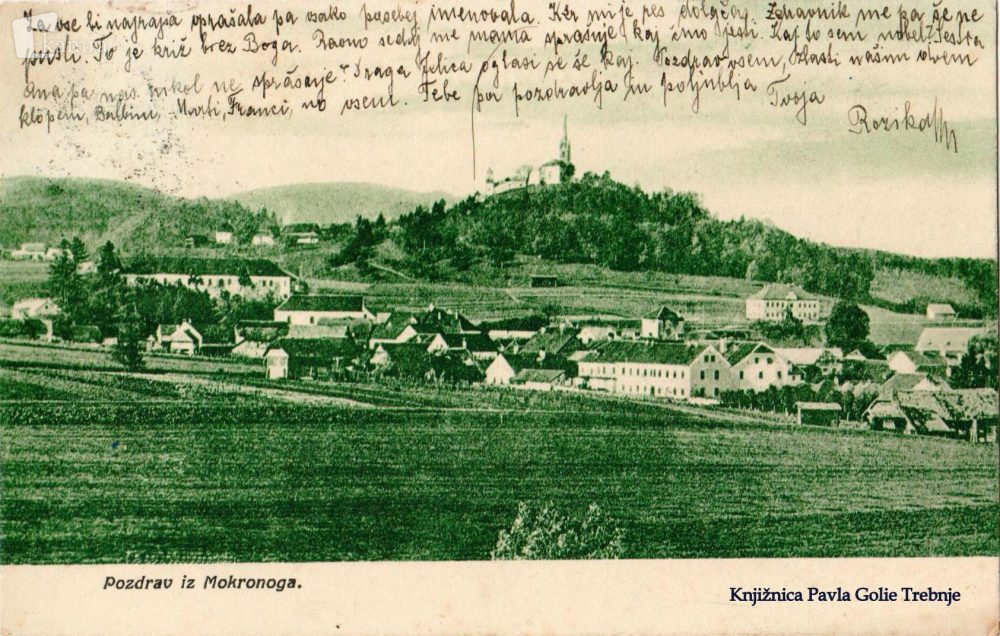 Za vse bi najrajša vprašala pa vsako posebej imenovala. Ker mi je res dolgčaz. Zdravnik me pa še ne
pusti. To je križ brez Boga. Ravno sedaj me mama vprašuje kaj čmo jesti. Kaj to sem
Ana pa nas nikol ne vprašaje Draga Jelica oglasi se še kaj. Pozdrav vsem, Vlasti vašim
Balbini, Franci, no vsem. Tebe pa pozdravlja in poljublja
Tvoja
Rezika
Pozdrav iz Mokronoga.
Knjižnica Pavla Golie Trebnje